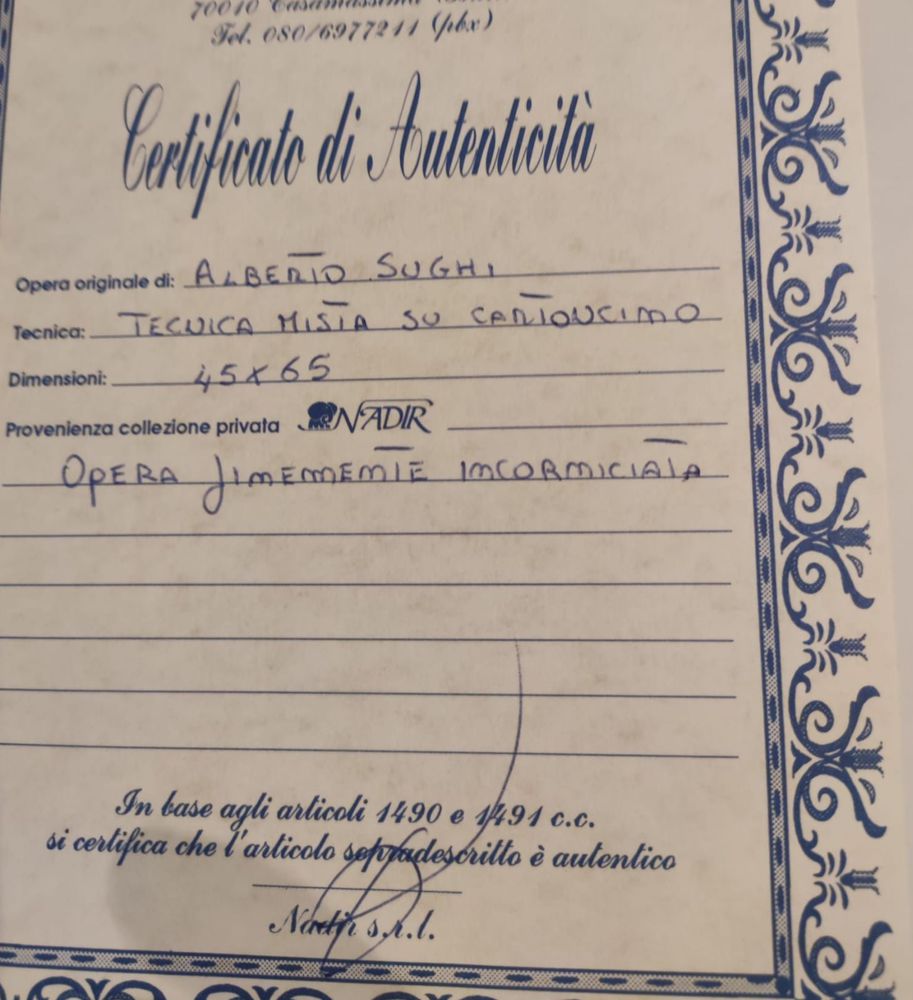 70010 Casamassima
Tel. 080/6977211 (pbx)
Certificato di Autenticità
Opera originale di: ALBERTO SUGHI
Tecnica: TECNICA MISTA SU CARTONCINO
Dimensioni: 45x65
Provenienza collezione privata NADIR
OPERA FINEMENTE INCORNICIATA
In base agli articoli 1490 e 1491 c.c.
si certifica che l'articolo sopradescritto è autentico
Nadir s.r.l.